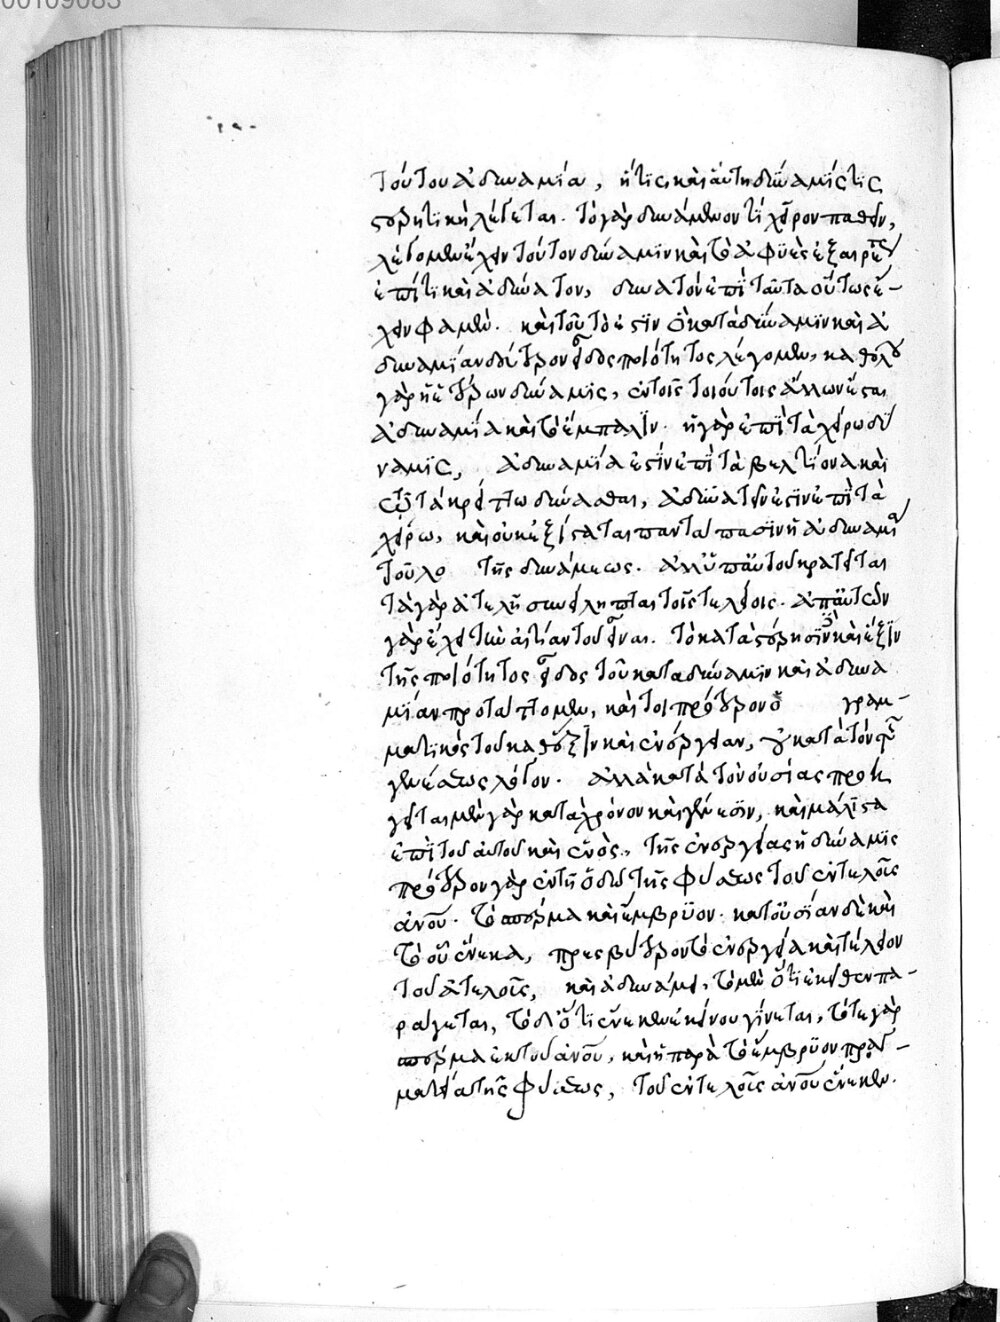 00109083
τούτου ἀδυναμία, ἥτις καὶ αὐτὴ δύναμίς τις
στερητικὴ λέγεται. τὸ γὰρ δυνάμενόν τι χεῖρον παθεῖν,
λέγομεν ἔχειν τούτου δύναμιν καὶ τὸ ἀφυὲς
ἐπί τι καὶ ἀδύνατον, δυνατὸν ἐπὶ ταῦτα οὕτως ἔ-
χειν φαμέν. καὶ τοῦτό ἐστιν ὃ κατὰ δύναμιν καὶ ἀ
δυναμίαν δεύτερον εἶδος ποιότητος λέγομεν, καθόλου
γὰρ ἡ ἑτέρων δύναμις, ἐν τοῖς τοιούτοις ἄλλων ἔσται
ἀδυναμία καὶ τὸ ἔμπαλιν. ἡ γὰρ ἐπὶ τὰ χείρω δύ
ναμις, ἀδυναμία ἐστὶν ἐπὶ τὰ βελτίονα καὶ
τὰ κρείττω δύνασθαι, ἀδυνατεῖν ἐστιν ἐπὶ τὰ
χείρω, καὶ οὐκ ἐξίσταται παντάπασιν ἡ ἀδυναμία
τῆς δυνάμεως. ἀλλ' ὑπ' αὐτοῦ κρατεῖται
τὰ γὰρ ἀτελῆ συνείληπται τοῖς τελείοις. ἀπ' αὐτῶν
γὰρ ἔχει τὴν αἰτίαν τοῦ εἶναι. τὸ κατὰ στέρησιν καὶ ἕξιν
τῆς ποιότητος εἶδος τοῦ κατὰ δύναμιν καὶ ἀδυνα
μίαν προτάττομεν, καίτοι πρότερον ὁ γραμ-
ματικὸς τοῦ καθ' ἕξιν καὶ ἐνέργειαν, κατὰ τὸν τῆς
γενέσεως λόγον. ἀλλὰ κατὰ τὸν οὐσίας προη
γεῖται μὲν γὰρ κατὰ χρόνον καὶ γένεσιν, καὶ μάλιστα
ἐπὶ τοῦ αὐτοῦ καὶ ἑνός, τῆς ἐνεργείας ἡ δύναμις
πρότερον γὰρ ἐν τῇ ὁδῷ τῆς φύσεως τοῦ ἐντελοῦς
ἀνου. τὸ σπέρμα καὶ ἔμβρυον. κατ' οὐσίαν δὲ καὶ
τὸ οὗ ἕνεκα, πρεσβύτερον τὸ ἐνεργείᾳ καὶ τέλειον
τοῦ ἀτελοῦς, καὶ δυνάμει, τὸ μὲν ὅτι ἐκεῖθεν πα-
ράγεται, τὸ δ' ὅτι ἕνεκεν ἐκείνου γίνεται, τό τε γὰρ
σπέρμα ἐκ τοῦ ἀνου, καὶ ἡ παρὰ τὸ ἔμβρυον πραγ-
ματεία τῆς φύσεως, τοῦ ἐντελοῦς ἀνου ἕνεκεν.